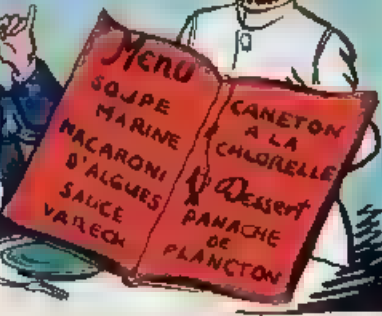 Menu
SOUPE
MARINE
MACARONI
D'ALGUES
SAUCE
VARECH
CANETON
A LA
CHLORELLE
Dessert
PANACHE
DE
PLANCTON